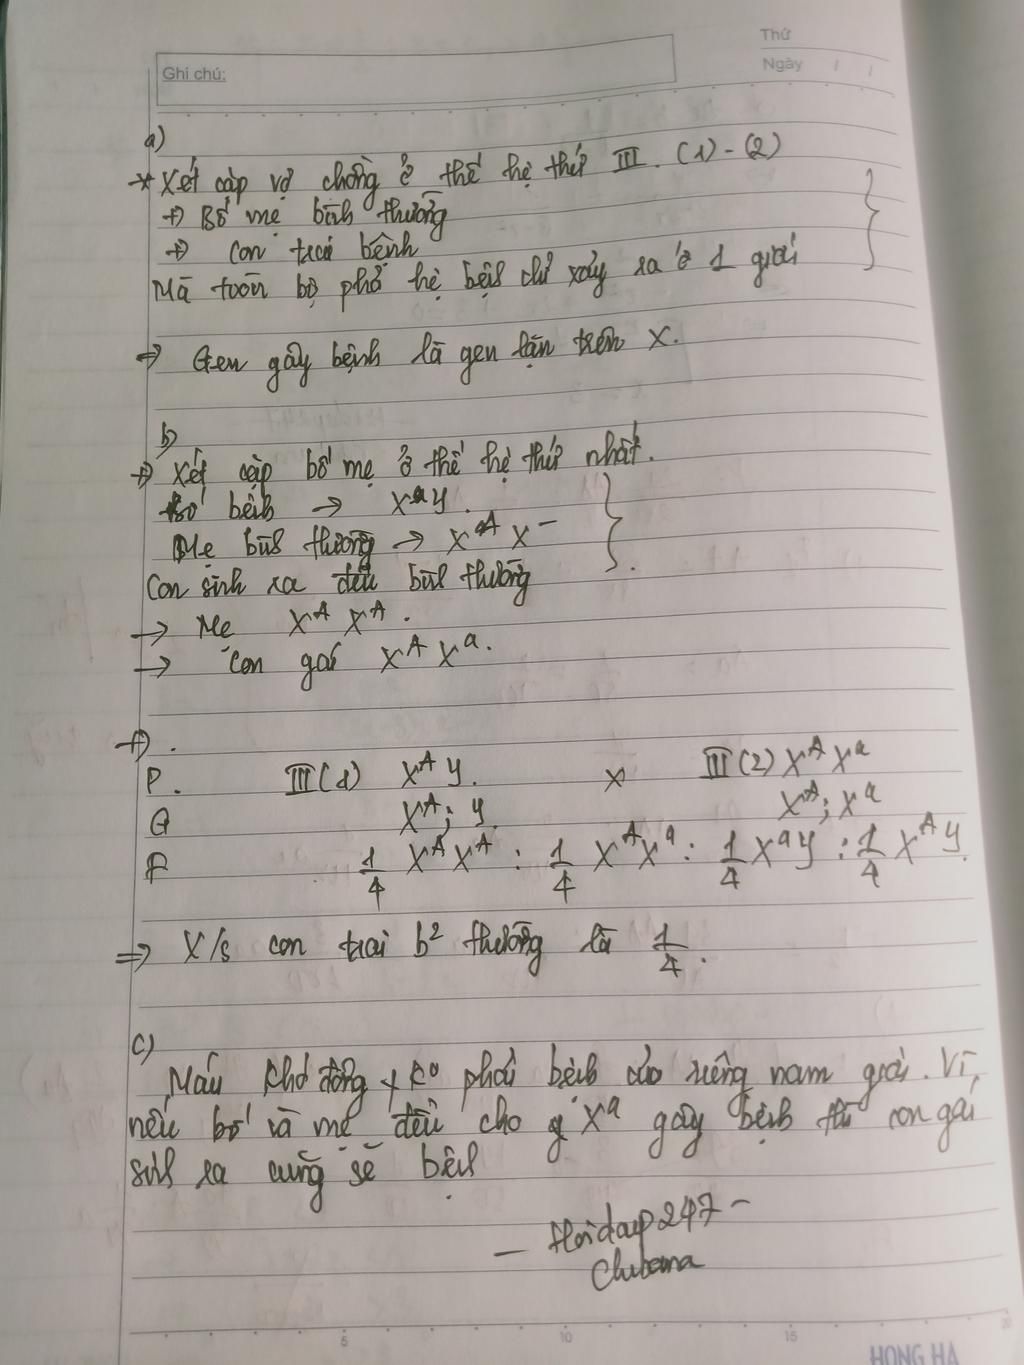 Thứ
Ghi chú:
Ngày / /
a)
* Xét cặp vợ chồng ở thế hệ thứ III. (1) - (2)
+) Bố mẹ bình thường
+) Con trai bệnh
Mà toàn bộ phổ hệ bệnh chỉ xảy ra ở 1 giới
=> Gen gây bệnh là gen lặn trên X.
b)
+) Xét cặp bố mẹ ở thế hệ thứ nhất.
Bố bệnh → XᵃY.
Mẹ bình thường → Xᴬ X⁻
Con sinh ra đều bình thường
→ Mẹ Xᴬ Xᴬ.
→ Con gái Xᴬ Xᵃ.
+).
P. III(1) XᴬY. x III(2) Xᴬ Xᵃ
G Xᴬ; Y Xᴬ; Xᵃ
F 1/4 XᴬXᴬ : 1/4 XᴬXᵃ : 1/4 XᵃY : 1/4 XᴬY.
=> X/s con trai b² thường là 1/4.
c)
Máu khó đông k⁰ phải bệnh của riêng nam giới. Vì,
nếu bố và mẹ đều cho g Xᵃ gây bệnh thì con gái
sinh ra cũng sẽ bệnh
- Hoidap247 -
5 10 15 20
HONG HA